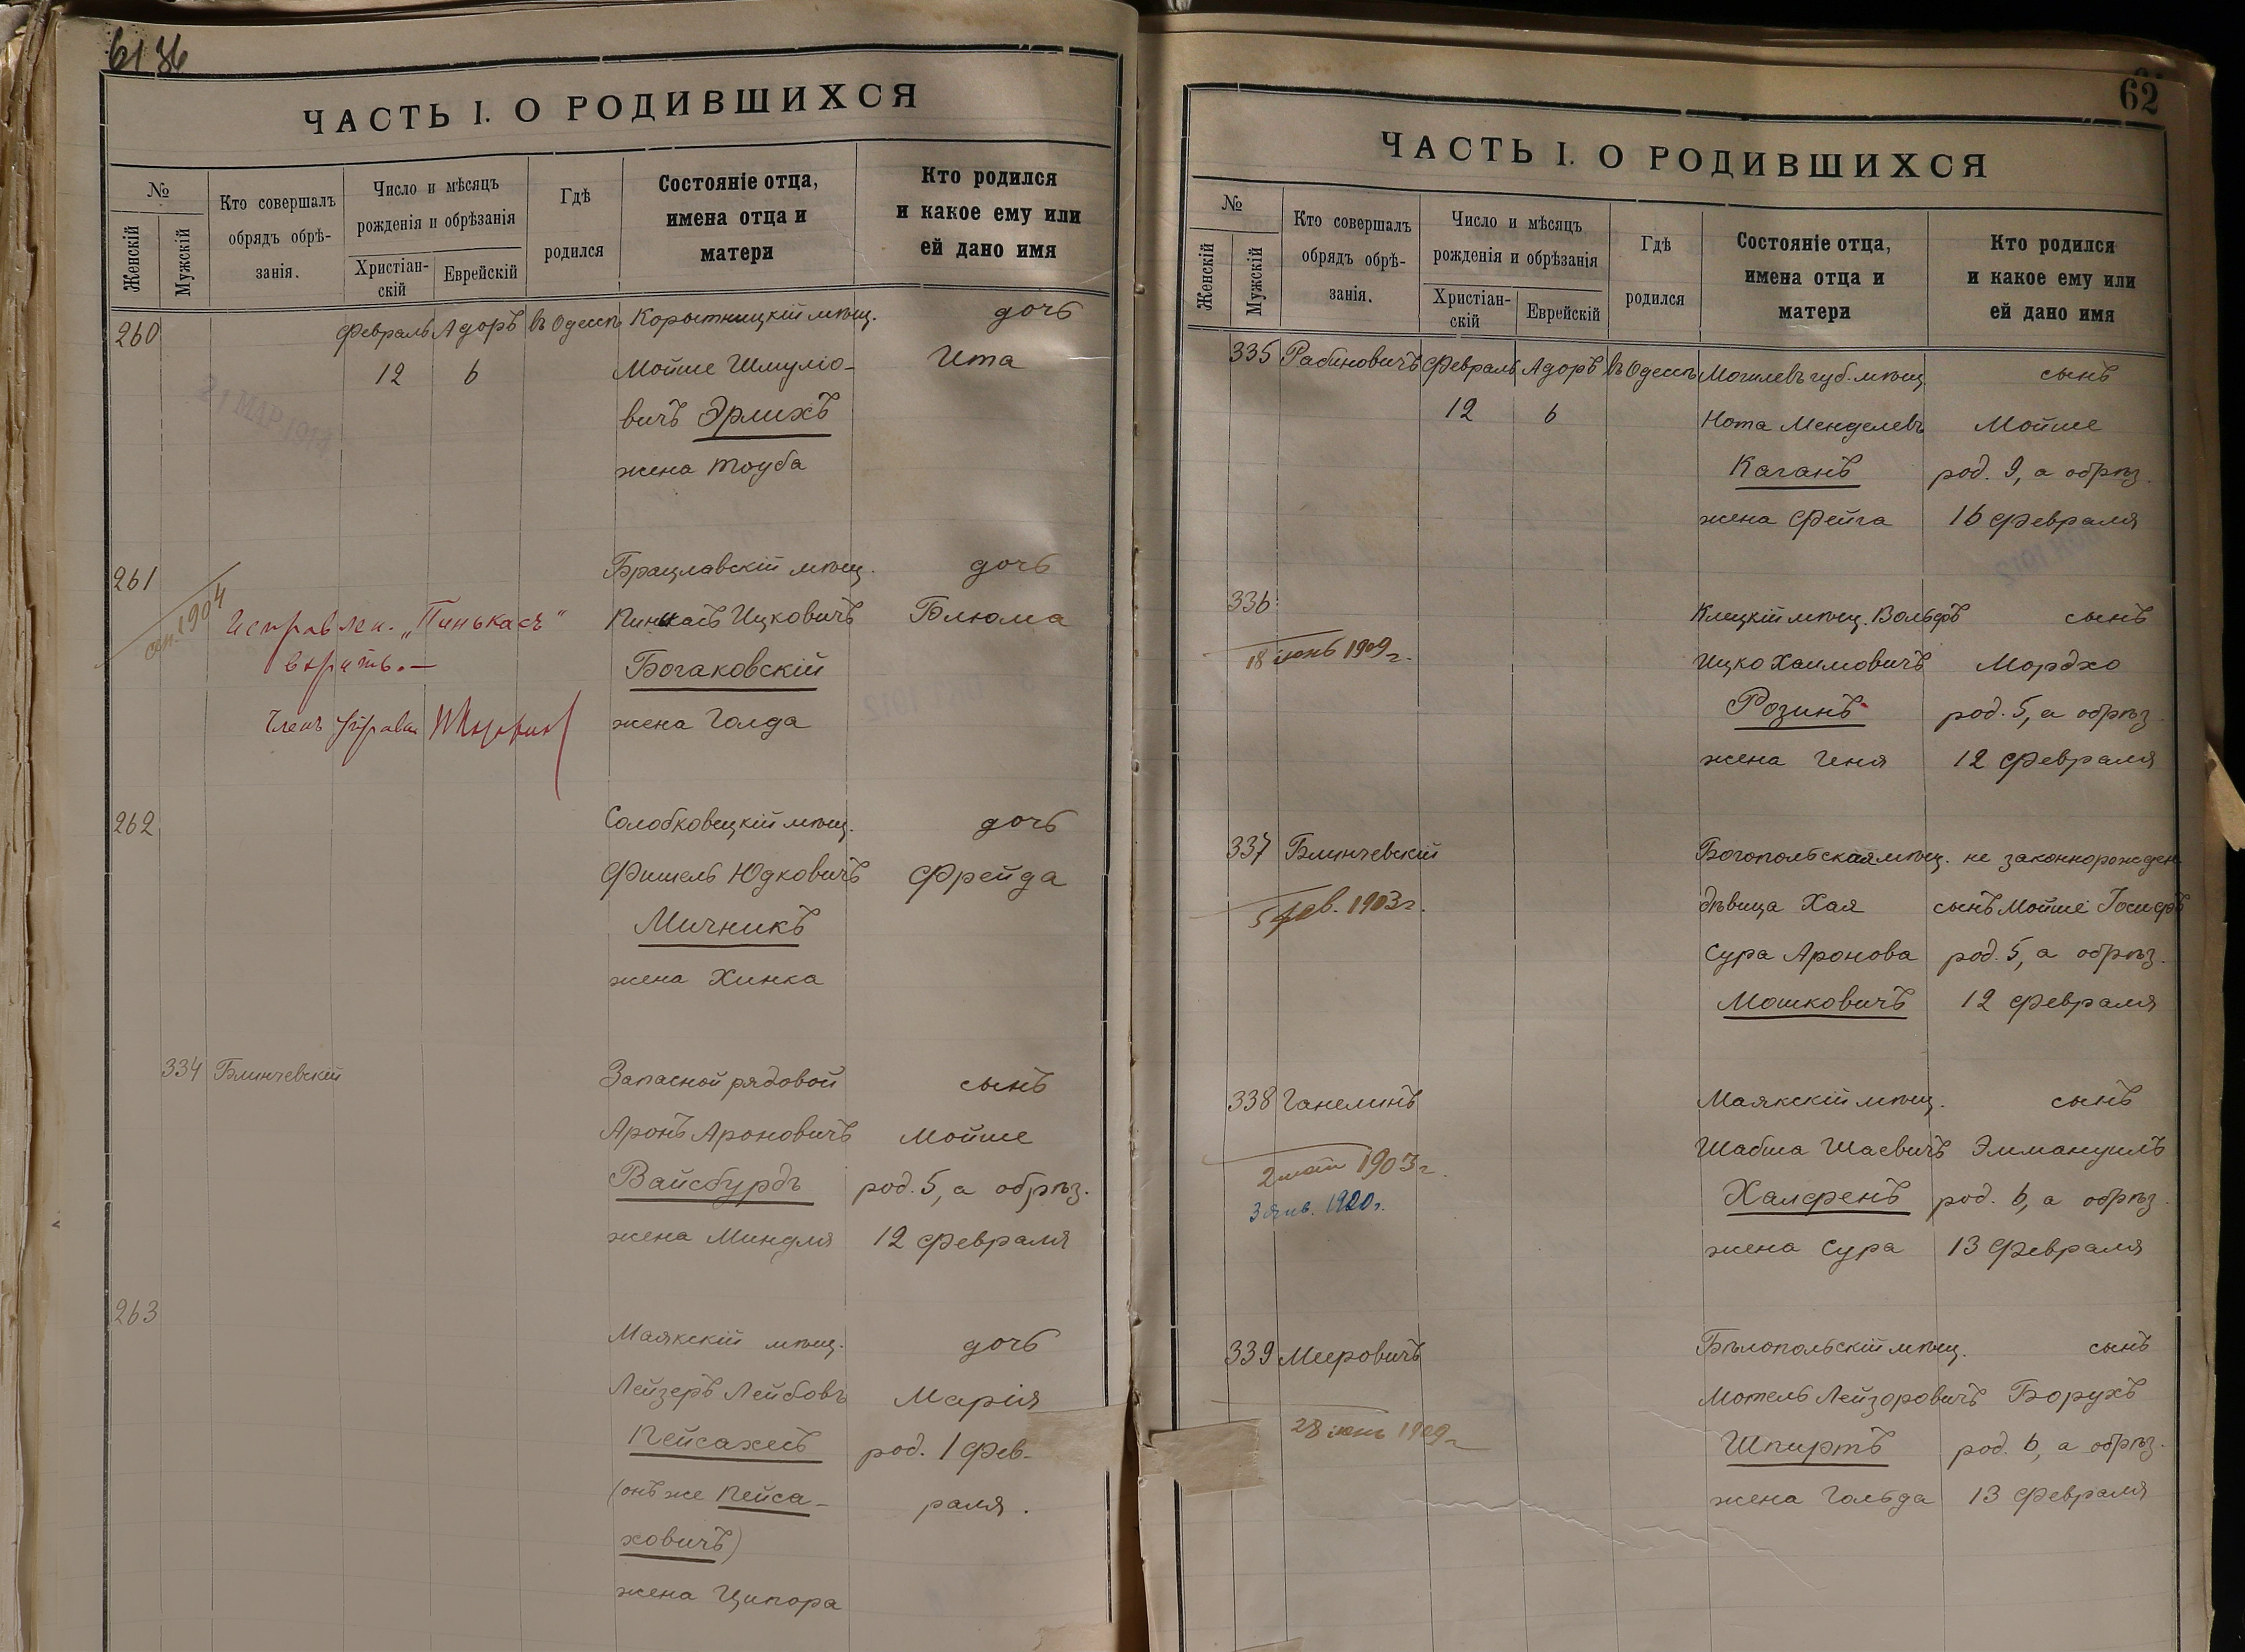 6136
ЧАСТЬ I. О РОДИВШИХСЯ
№
Женскій
Мужскій
Кто совершалъ
обрядъ обрѣ-
занія.
Число и мѣсяцъ
рожденія и обрѣзанія
Христіан-
скій
Еврейскій
Гдѣ
родился
Состояніе отца,
имена отца и
матери
Кто родился
и какое ему или
ей дано имя
260 Февраль Адоръ въ Одессѣ Коростницкій мѣщ. дочь
12 6 Мойше Шмуліо- Ита
вичъ Эрлихъ
жена Тоуба
21 МАР 1914
261 Брацлавскій мѣщ. дочь
1904 Исправлен. „Пинькасъ“ Пинкасъ Ицковичъ Блюма
вѣрить.— Богаковскій
Членъ Управы жена Голда
262 Солобковецкій мѣщ. дочь
Фишель Юдковичъ Фрейда
Мичникъ
жена Хинка
334 Блинчевскій Запасной рядовой сынъ
Аронъ Ароновичъ Мойше
Вайсбурдъ род. 5, а обрѣз.
жена Миндля 12 Февраля
263 Маякскій мѣщ. дочь
Лейзеръ Лейбовъ Марія
Пейсахесъ род. 1 Фев-
(онъ же Пейса- раля.
ховичъ)
жена Ципора
62
ЧАСТЬ I. О РОДИВШИХСЯ
№
Женскій
Мужскій
Кто совершалъ
обрядъ обрѣ-
занія.
Число и мѣсяцъ
рожденія и обрѣзанія
Христіан-
скій
Еврейскій
Гдѣ
родился
Состояніе отца,
имена отца и
матери
Кто родился
и какое ему или
ей дано имя
335 Рабиновичъ Февраль Адоръ въ Одессѣ Могилевъ губ. мѣщ. сынъ
12 6 Нота Менделевъ Мойше
Каганъ род. 9, а обрѣз.
жена Фейга 16 Февраля
336 Клецкій мѣщ. Вольфъ сынъ
18 іюнь 1909 г. Ицко Хаимовичъ Мордхо
Розинъ род. 5, а обрѣз.
жена Геня 12 Февраля
337 Блинчевскій Богопольская мѣщ. не законнорожден.
5 фев. 1903 г. дѣвица Хая сынъ Мойше Іосифъ
Сура Аронова род. 5, а обрѣз.
Мошковичъ 12 Февраля
338 Ганелинъ Маякскій мѣщ. сынъ
2 1903 г. Шабша Шаевичъ Эммануилъ
3 янв. 1920 г. Халфренъ род. 6, а обрѣз.
жена Сура 13 Февраля
339 Мееровичъ Бѣлопольскій мѣщ. сынъ
28 іюнь 1909 г. Мотель Лейзоровичъ Борухъ
Шпиртъ род. 6, а обрѣз.
жена Гольда 13 Февраля